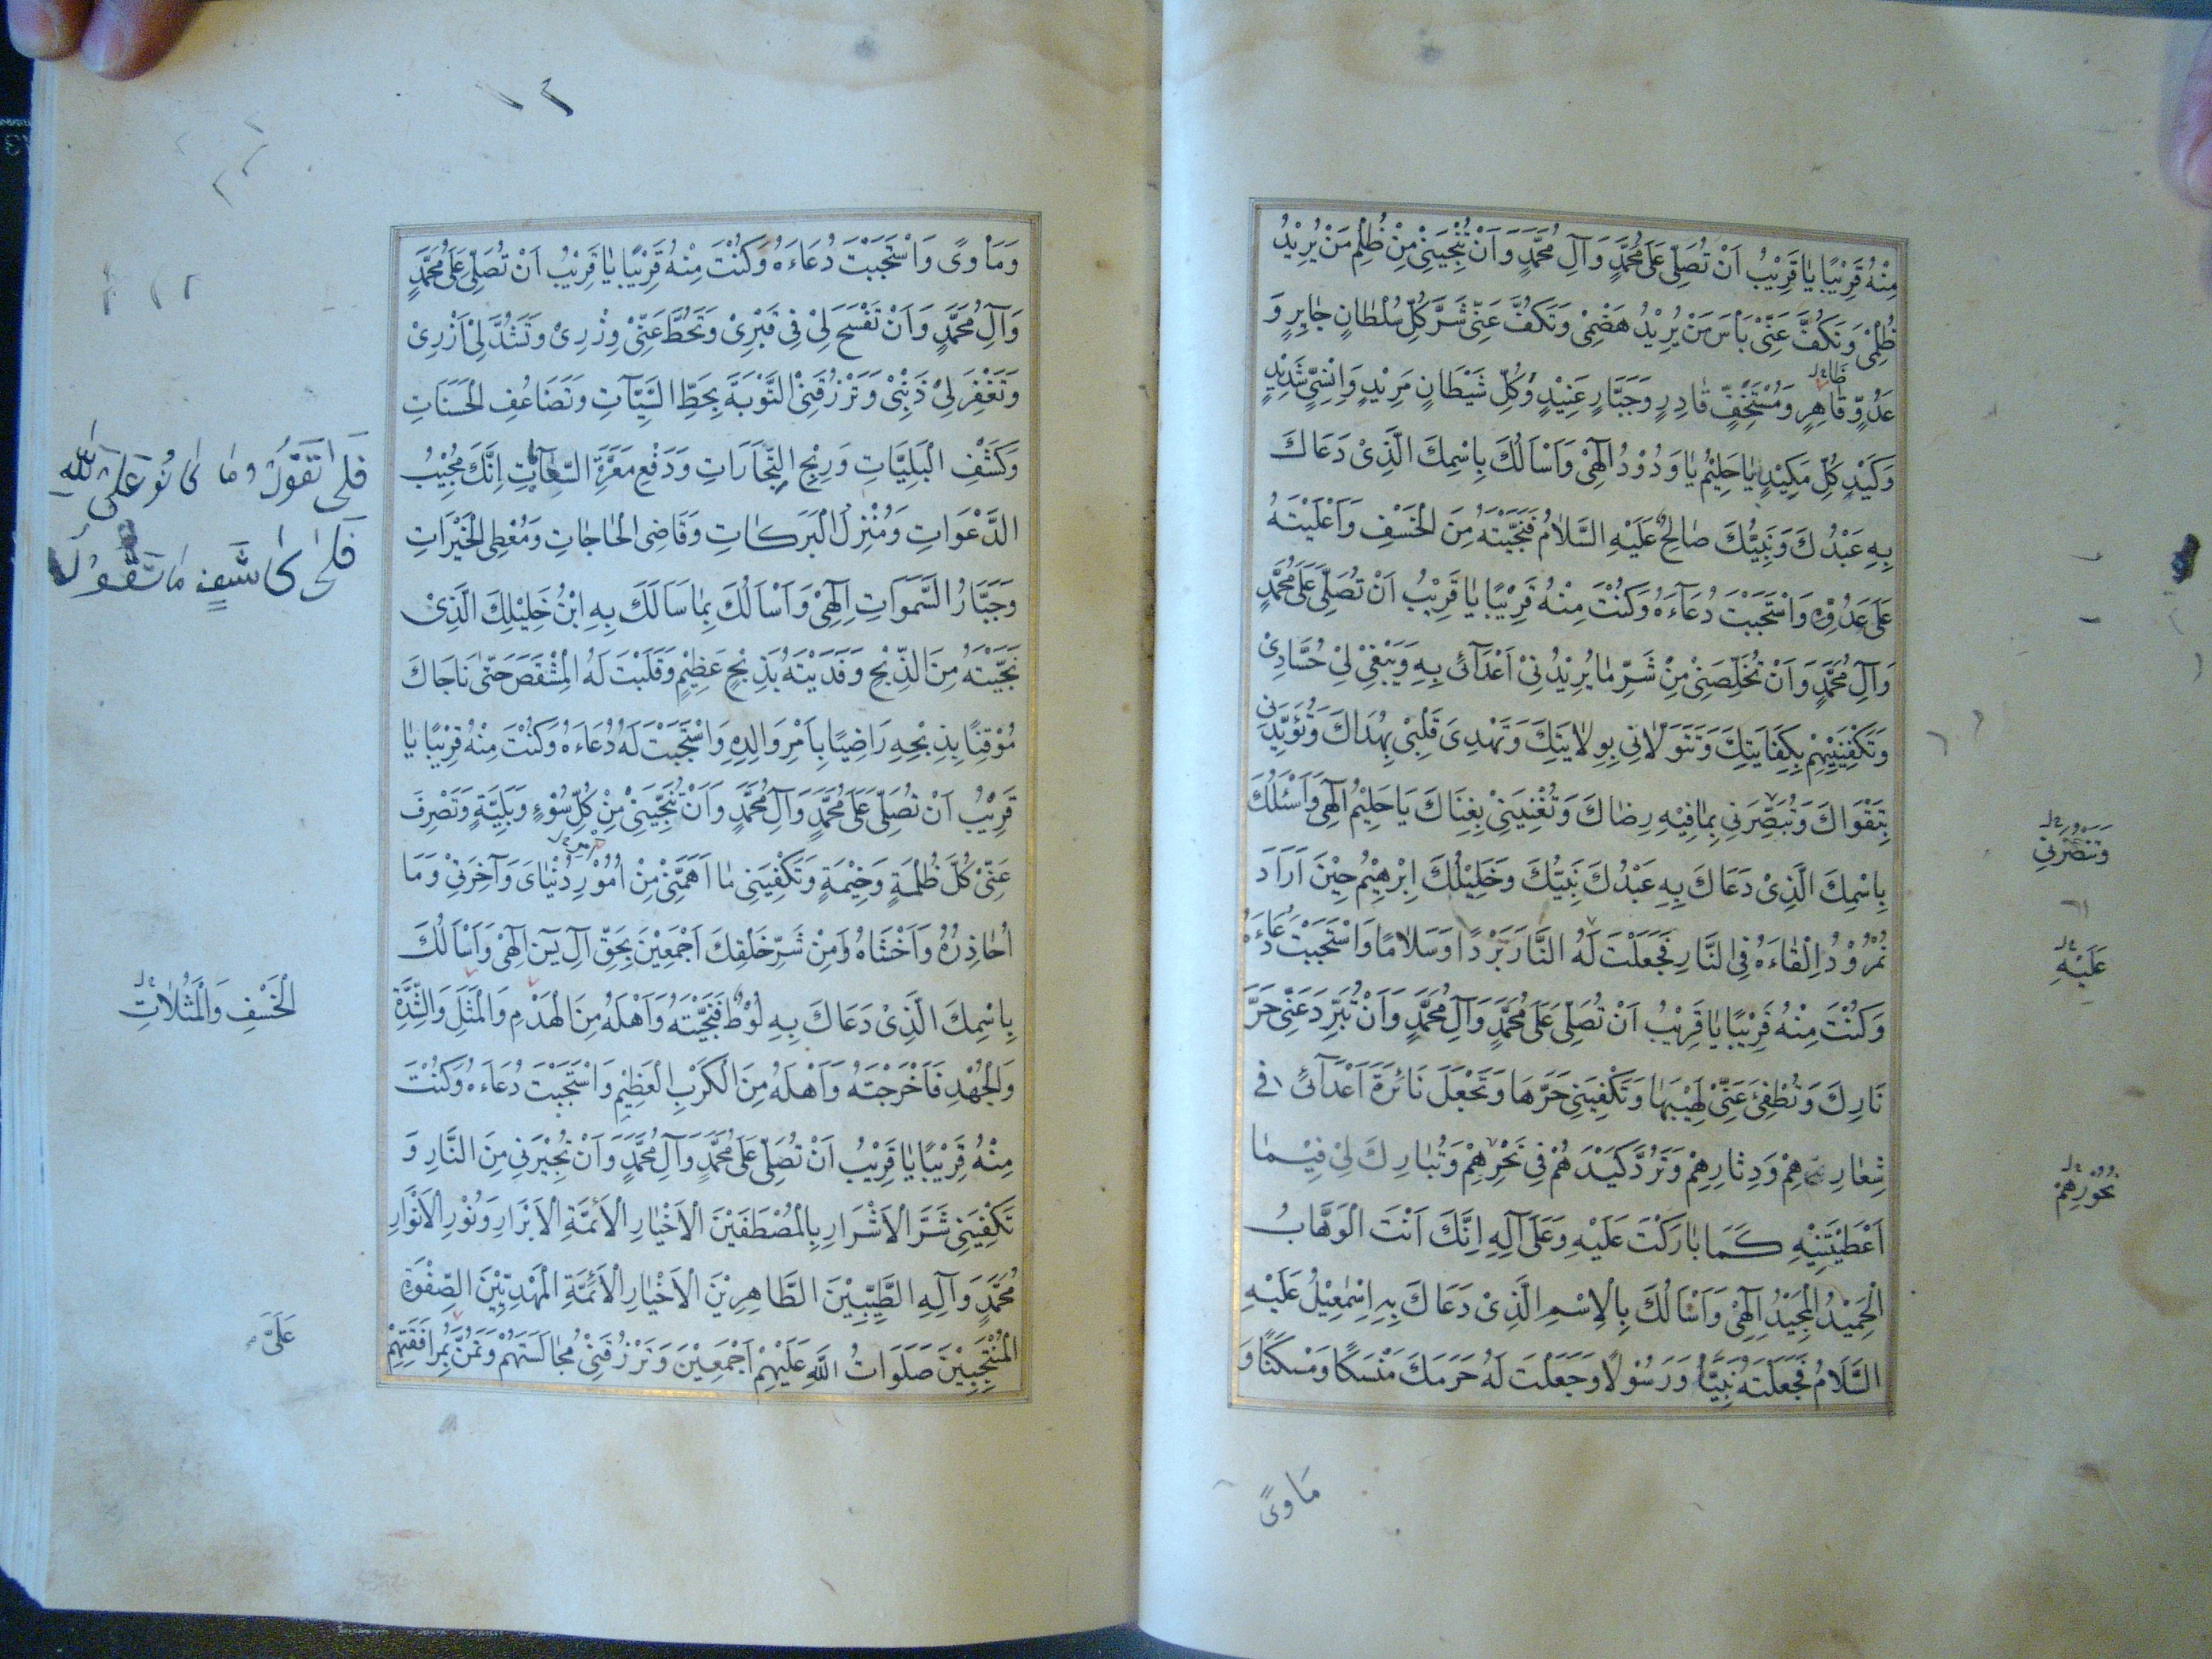 مِنْهُ قَرِيْبًا يَا قَرِيْبُ اَنْ تُصَلِّيَ عَلَى مُحَمَّدٍ وَآلِ مُحَمَّدٍ وَاَنْ تُنْجِيَنِيْ مِنْ ظُلْمِ مَنْ يُرِيْدُ
ظُلْمِيْ وَتَكُفَّ عَنِّيْ بَأْسَ مَنْ يُرِيْدُ هَضْمِيْ وَتَكُفَّ عَنِّيْ شَرَّ كُلِّ سُلْطَانٍ جَايِرٍ وَ
عَدُوٍّ قَاهِرٍ وَمُسْتَخِفٍّ قَادِرٍ وَجَبَّارٍ عَنِيْدٍ وَكُلِّ شَيْطَانٍ مَرِيْدٍ وَاِنْسِيٍّ شَدِيْدٍ
وَكَيْدِ كُلِّ مَكِيْدٍ يَا حَلِيْمُ يَا وَدُوْدُ اِلٰهِيْ وَاَسْاَلُكَ بِاسْمِكَ الَّذِيْ دَعَاكَ
بِهِ عَبْدُكَ وَنَبِيُّكَ صَالِحٌ عَلَيْهِ السَّلَامُ فَنَجَّيْتَهُ مِنَ الْخَسْفِ وَاَعْلَيْتَهُ
عَلَى عَدُوِّهِ وَاسْتَجَبْتَ دُعَآءَهُ وَكُنْتَ مِنْهُ قَرِيْبًا يَا قَرِيْبُ اَنْ تُصَلِّيَ عَلَى مُحَمَّدٍ
وَآلِ مُحَمَّدٍ وَاَنْ تُخَلِّصَنِيْ مِنْ شَرِّ مَا يُرِيْدُنِيْ اَعْدَآئِيْ بِهِ وَيَبْغِيْ لِيْ حُسَّادِيْ
وَتَكْفِيَنِيْهِمْ بِكِفَايَتِكَ وَتَتَوَلَّانِي بِوِلَايَتِكَ وَتَهْدِيَ قَلْبِيْ بِهُدَاكَ وَتُؤَيِّدَنِي
بِتَقْوَاكَ وَتُبَصِّرَنِي بِمَا فِيْهِ رِضَاكَ وَتُغْنِيَنِيْ بِغِنَاكَ يَا حَلِيْمُ اِلٰهِيْ وَاَسْئَلُكَ
وَتَنْصُرَنِي
بِاسْمِكَ الَّذِيْ دَعَاكَ بِهِ عَبْدُكَ نَبِيُّكَ وَخَلِيْلُكَ اِبْرٰهِيْمُ حِيْنَ اَرَادَ
نُمْرُوْدُ اِلْقَاءَهُ فِي النَّارِ فَجَعَلْتَ لَهُ النَّارَ بَرْدًا وَسَلَامًا وَاسْتَجَبْتَ دُعَاءَهُ
عَلَيْهِ
وَكُنْتَ مِنْهُ قَرِيْبًا يَا قَرِيْبُ اَنْ تُصَلِّيَ عَلَى مُحَمَّدٍ وَآلِ مُحَمَّدٍ وَاَنْ تُبَرِّدَ عَنِّي حَرَّ
نَارِكَ وَتُطْفِئَ عَنِّيْ لَهِيْبَهَا وَتَكْفِيَنِي حَرَّهَا وَتَجْعَلَ نَائِرَةَ اَعْدَآئِيْ فِي
شِعَارِهِمْ وَدِثَارِهِمْ وَتَرُدَّ كَيْدَهُمْ فِي نَحْرِهِمْ وَتُبَارِكَ لِيْ فِيْمَا
نُحُوْرِهِمْ
اَعْطَيْتَنِيْهِ كَمَا بَارَكْتَ عَلَيْهِ وَعَلَى آلِهِ اِنَّكَ اَنْتَ الْوَهَّابُ
الْحَمِيْدُ الْمَجِيْدُ اِلٰهِيْ وَاَسْاَلُكَ بِالْاِسْمِ الَّذِيْ دَعَاكَ بِهِ اِسْمٰعِيْلُ عَلَيْهِ
السَّلَامُ فَجَعَلْتَهُ نَبِيًّا وَرَسُوْلًا وَجَعَلْتَ لَهُ حَرَمَكَ مَنْسَكًا وَمَسْكَنًا وَ
مَاْوىً
وَمَاْوىً وَاسْتَجَبْتَ دُعَاءَهُ وَكُنْتَ مِنْهُ قَرِيْبًا يَا قَرِيْبُ اَنْ تُصَلِّيَ عَلَى مُحَمَّدٍ
وَآلِ مُحَمَّدٍ وَاَنْ تَفْسَحَ لِيْ فِي قَبْرِيْ وَتَحُطَّ عَنِّيْ وِزْرِيْ وَتَشُدَّ لِيْ اَزْرِيْ
وَتَغْفِرَ لِيْ ذَنْبِيْ وَتَرْزُقَنِيْ التَّوْبَةَ بِحَطِّ السَّيِّئَآتِ وَتَضَاعُفِ الْحَسَنَاتِ
وَكَشْفِ الْبَلِيَّاتِ وَرِبْحِ التِّجَارَاتِ وَدَفْعِ مَعَرَّةِ السِّعَايَاتِ اِنَّكَ مُجِيْبُ
الدَّعَوَاتِ وَمُنْزِلُ الْبَرَكَاتِ وَقَاضِي الْحَاجَاتِ وَمُعْطِي الْخَيْرَاتِ
وَجَبَّارُ السَّمَوَاتِ اِلٰهِيْ وَاَسْاَلُكَ بِمَا سَاَلَكَ بِهِ ابْنُ خَلِيْلِكَ الَّذِيْ
نَجَّيْتَهُ مِنَ الذَّبْحِ وَفَدَيْتَهُ بِذِبْحٍ عَظِيْمٍ وَقَلَبْتَ لَهُ الْمِشْقَصَ حَتَّى نَاجَاكَ
مُوْقِنًا بِذَبْحِهِ رَاضِيًا بِاَمْرِ وَالِدِهِ وَاسْتَجَبْتَ لَهُ دُعَاءَهُ وَكُنْتَ مِنْهُ قَرِيْبًا يَا
قَرِيْبُ اَنْ تُصَلِّيَ عَلَى مُحَمَّدٍ وَآلِ مُحَمَّدٍ وَاَنْ تُنَجِّيَنِيْ مِنْ كُلِّ سُوْءٍ وَبَلِيَّةٍ وَتَصْرِفَ
عَنِّيْ كُلَّ ظُلْمَةٍ وَخِيْمَةٍ وَتَكْفِيَنِي مَا اَهَمَّنِيْ مِنْ اُمُوْرِ دُنْيَايَ وَآخِرَتِيْ وَمَا
اُحَاذِرُهُ وَاَخْشَاهُ وَمِنْ شَرِّ خَلْقِكَ اَجْمَعِيْنَ بِحَقِّ آلِ يٰسٓ اِلٰهِيْ وَاَسْاَلُكَ
بِاسْمِكَ الَّذِيْ دَعَاكَ بِهِ لُوْطٌ فَنَجَّيْتَهُ وَاَهْلَهُ مِنَ الْهَدْمِ وَالْمَثَلِ وَالشِّدَّةِ
الْخَسْفِ وَالْمَثُلَاتِ
وَالْجُهْدِ فَاَخْرَجْتَهُ وَاَهْلَهُ مِنَ الْكَرْبِ الْعَظِيْمِ وَاسْتَجَبْتَ دُعَاءَهُ وَكُنْتَ
مِنْهُ قَرِيْبًا يَا قَرِيْبُ اَنْ تُصَلِّيَ عَلَى مُحَمَّدٍ وَآلِ مُحَمَّدٍ وَاَنْ تُجِيْرَنِي مِنَ النَّارِ وَ
تَكْفِيَنِي شَرَّ الْاَشْرَارِ بِالْمُصْطَفَيْنَ الْاَخْيَارِ الْاَئِمَّةِ الْاَبْرَارِ وَنُوْرِ الْاَنْوَارِ
مُحَمَّدٍ وَآلِهِ الطَّيِّبِيْنَ الطَّاهِرِيْنَ الْاَخْيَارِ الْاَئِمَّةِ الْمَهْدِيِّيْنَ الصِّفْوَةِ
الْمُنْتَجَبِيْنَ صَلَوَاتُ اللّٰهِ عَلَيْهِمْ اَجْمَعِيْنَ وَتَرْزُقَنِيْ مُجَالَسَتَهُمْ وَتَمُنَّ بِمُرَافَقَتِهِمْ
عَلَيَّ